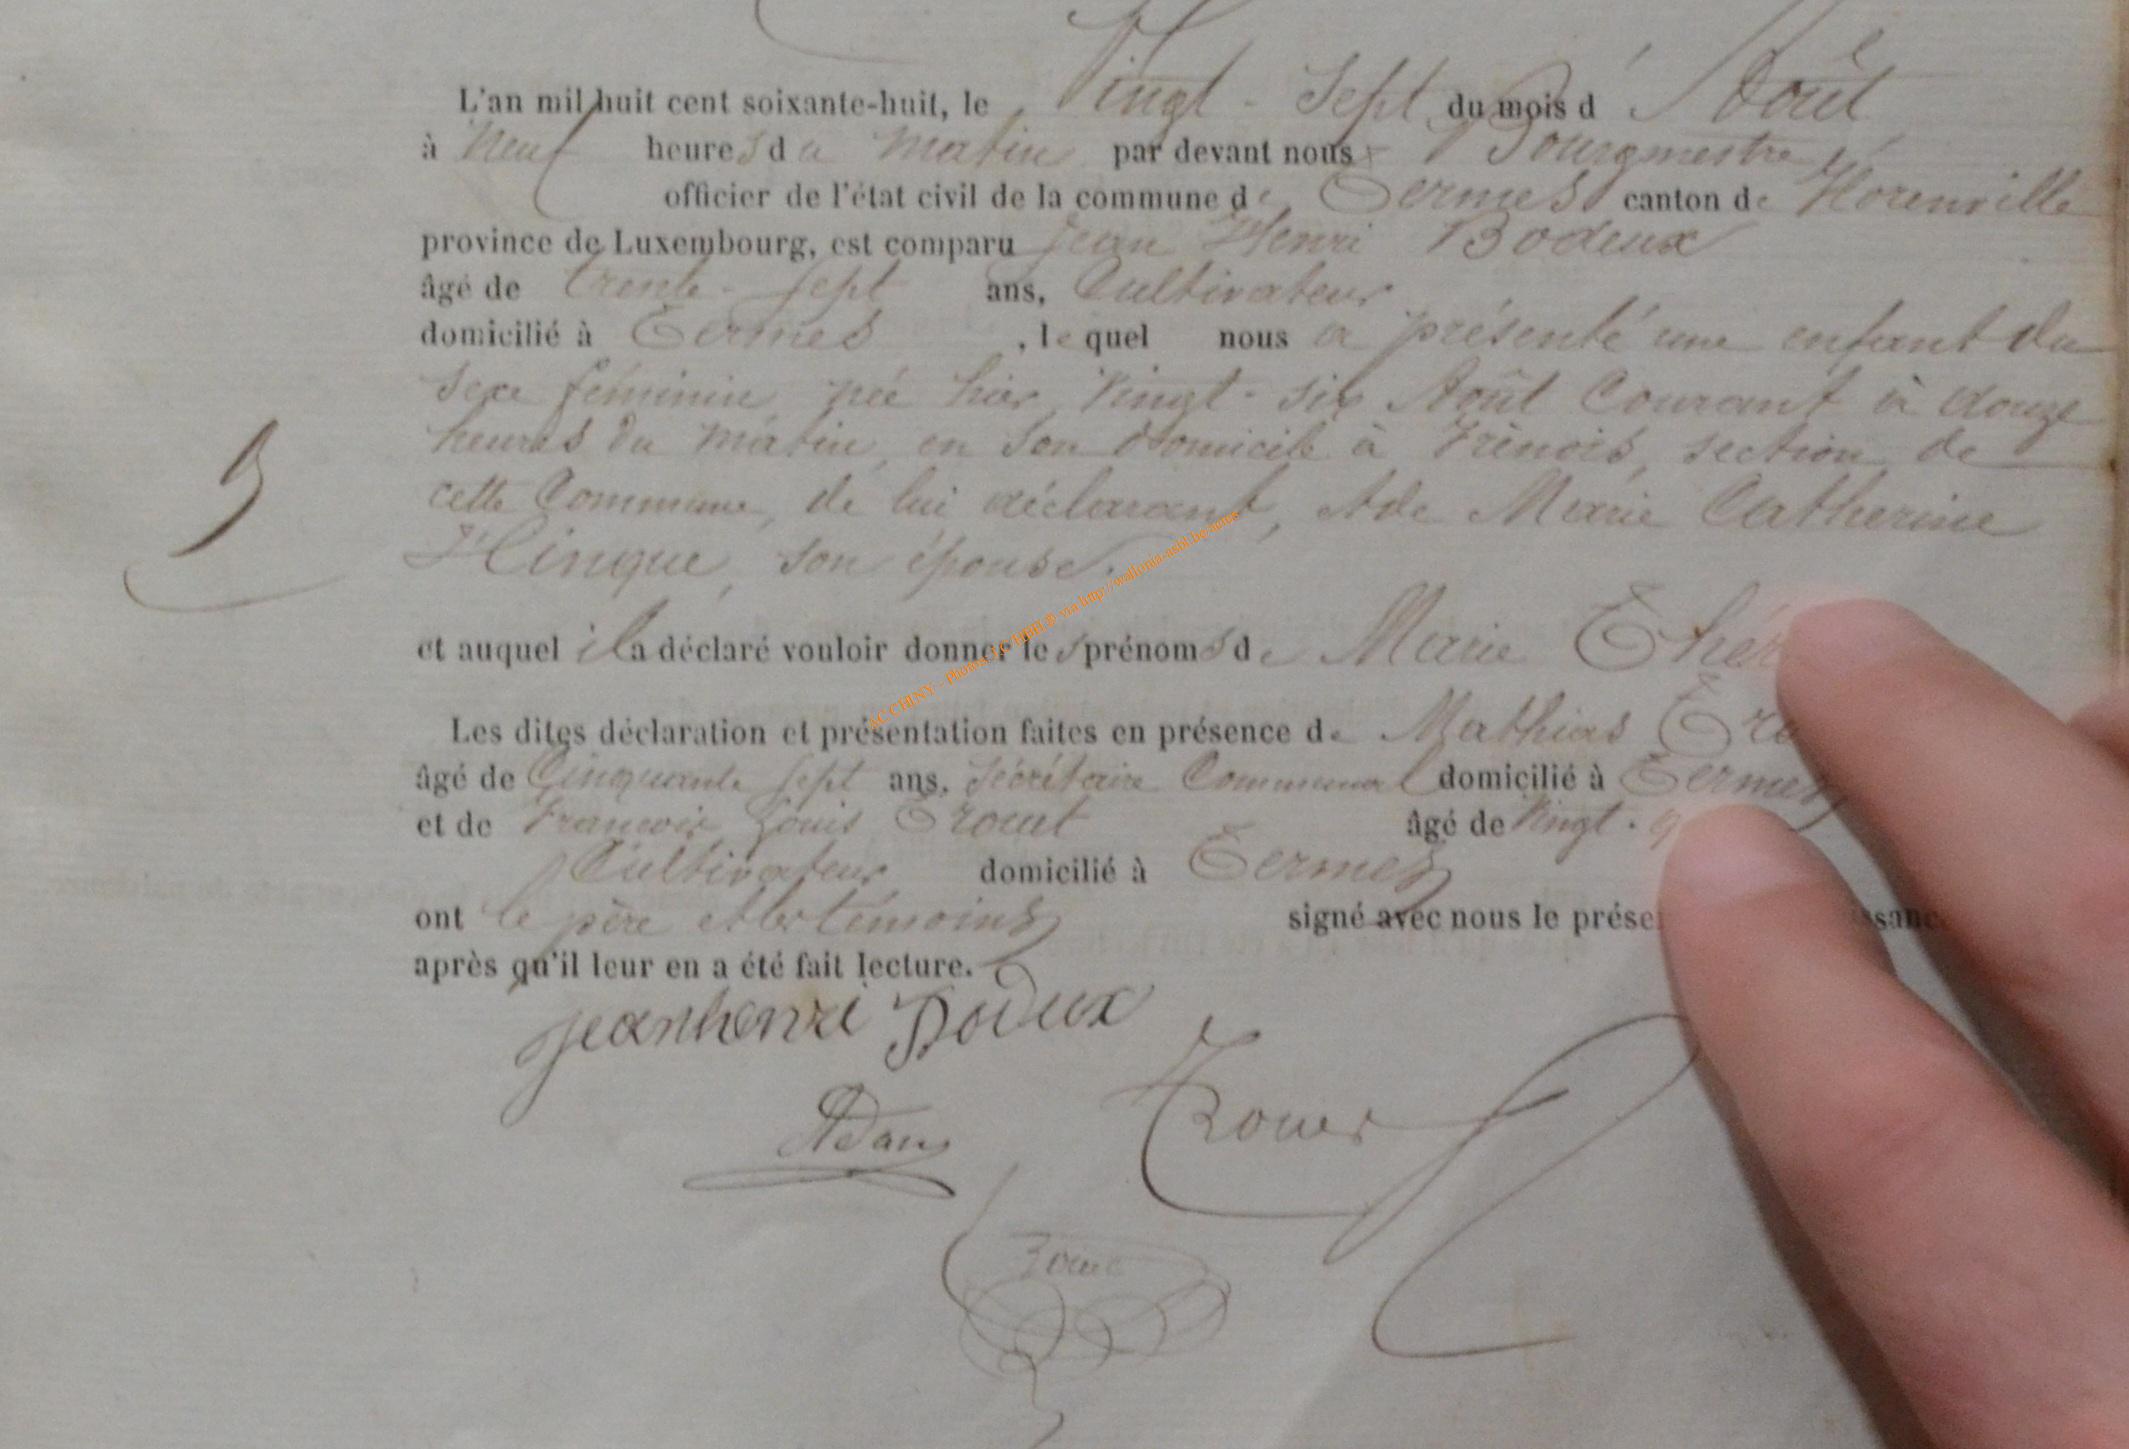 L'an mil huit cent soixante-huit, le Vingt-Sept du mois d'Août
à Neuf heures du matin par devant nous Bourgmestre
officier de l'état civil de la commune de Termes canton de Florenville
province de Luxembourg, est comparu Jean Henri Bodeux
âgé de trente-sept ans, Cultivateur
domicilié à Termes, lequel nous a présenté une enfant du
sexe féminin, née hier, Vingt-six Août Courant à douze
heures du matin, en son domicile à Frénois, section de
cette Commune, de lui déclarant, et de Marie Catherine
Hinque, son épouse.
et auquel il a déclaré vouloir donner les prénoms de Marie
Les dites déclaration et présentation faites en présence de Mathias
âgé de Cinquante sept ans, Sécrétaire Communal domicilié à Termes,
et de François Louis Trouet âgé de Vingt-
Cultivateur domicilié à Termes,
ont le père et les témoins, signé avec nous le
après qu'il leur en a été fait lecture.
jeanhenri Bodeux
Adam
AC CHINY - Photos LC HBH ® via http://wallonia-asbl.be/actes